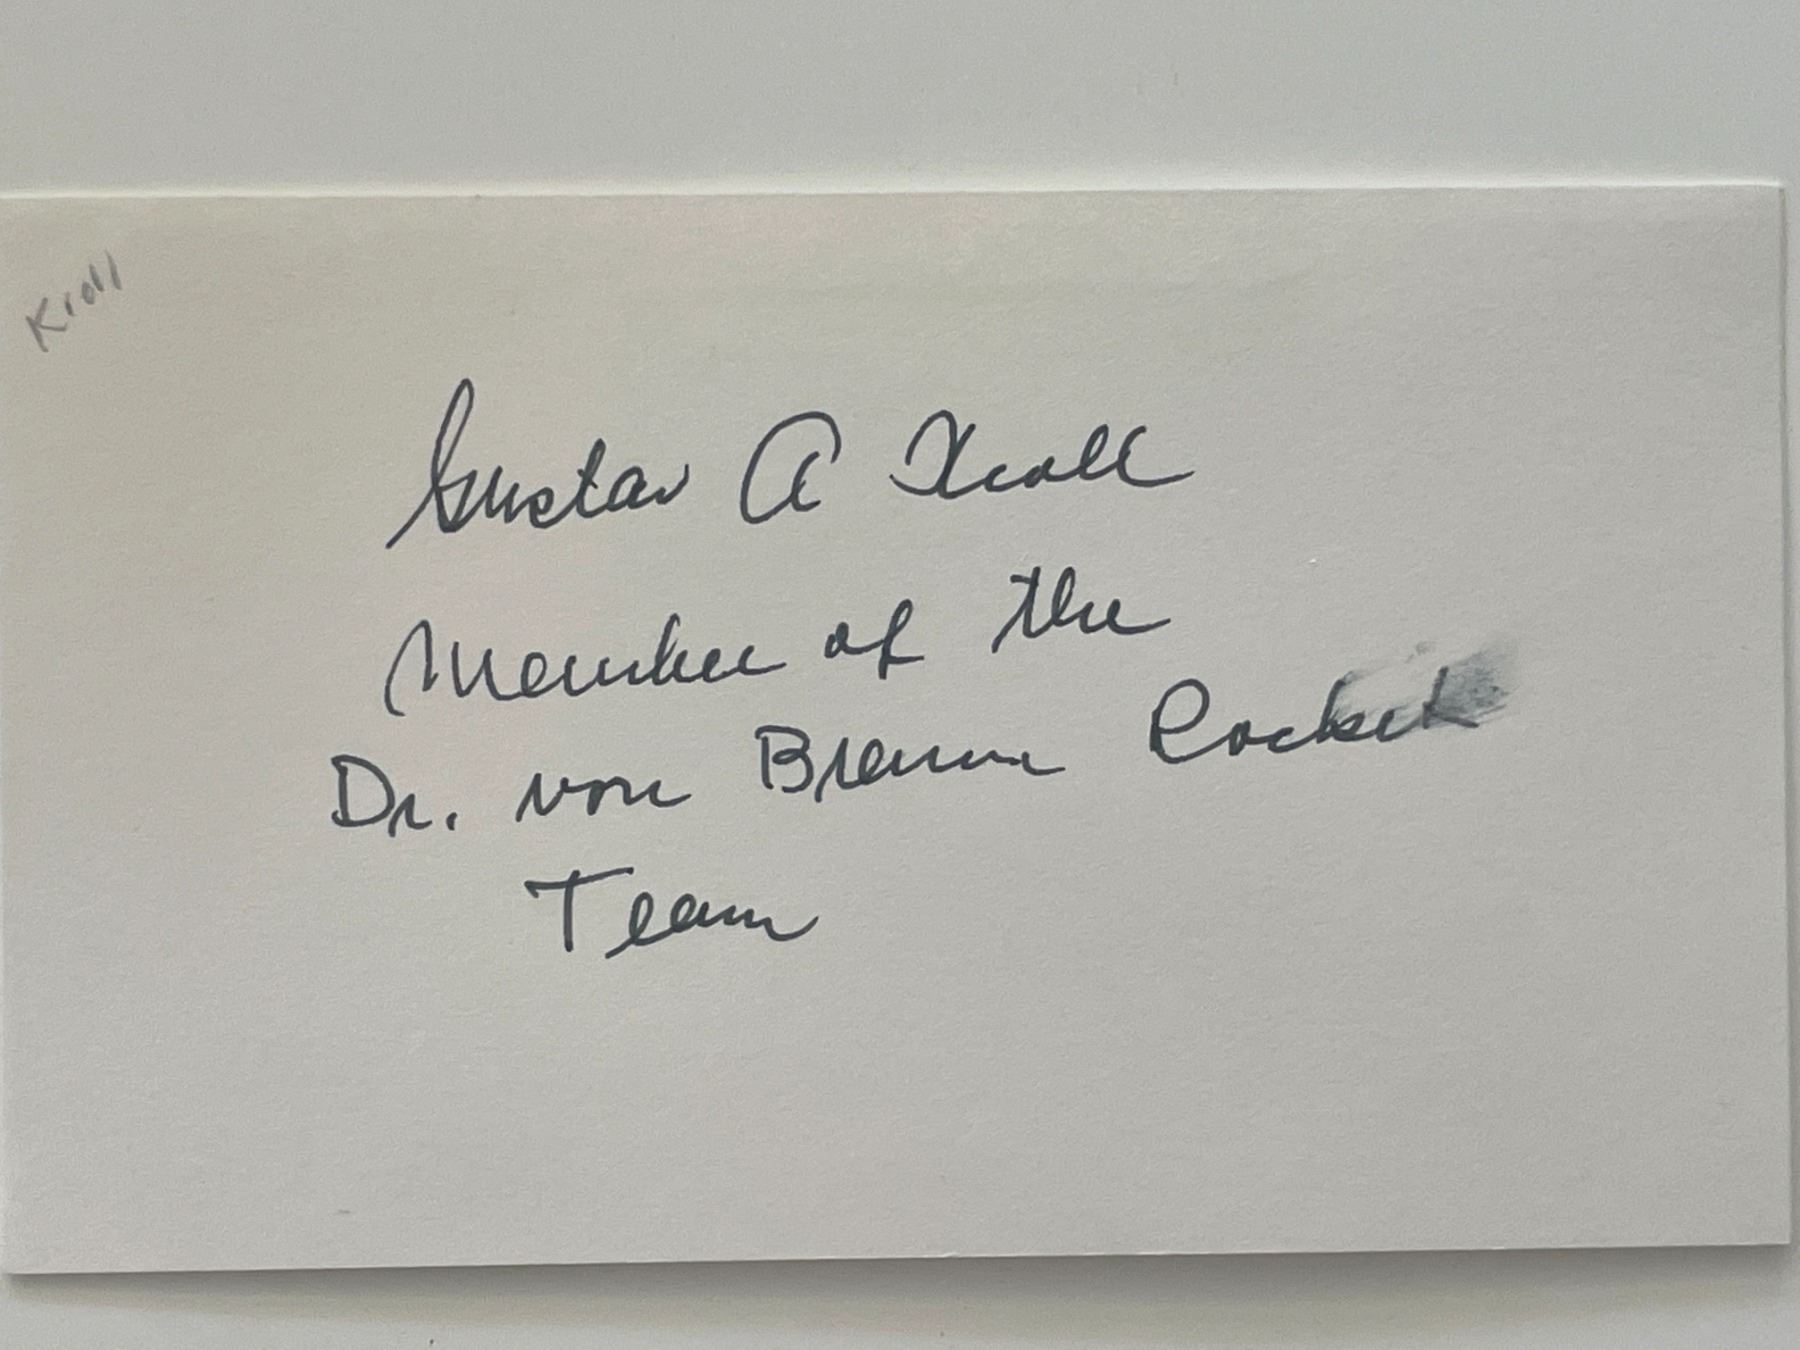 Kroll
Gustav A Kroll
Member of the
Dr. von Braun Rocket
Team